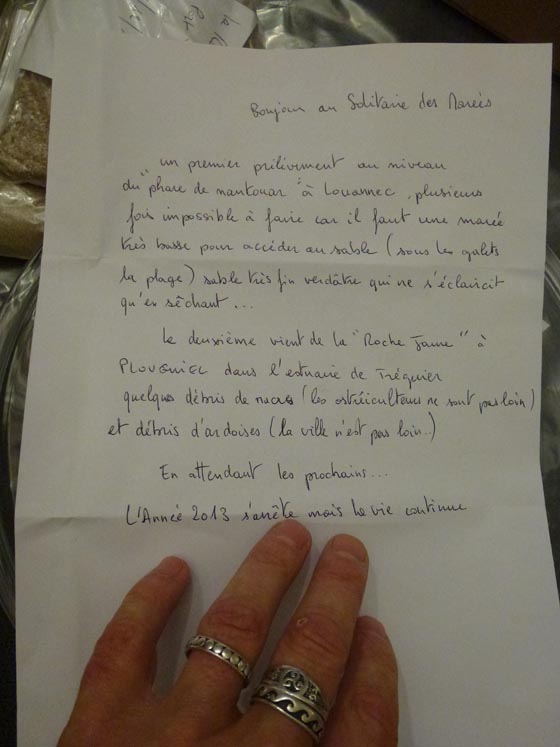 Bonjour au Solitaire des Marées
un premier prélèvement au niveau
du "phare de nantouar" à Louannec, plusieurs
fois impossible à faire car il faut une marée
très basse pour accéder au sable (sous les galets
la plage) sable très fin verdâtre qui ne s'éclaircit
qu'en sêchant...
Le deuxième vient de la "Roche Jaune" à
PLOUGUIEL dans l'estuaire de Tréguier
quelques débris de nacre (les ostréiculteurs ne sont pas loin)
et débris d'ardoises (la ville n'est pas loin..)
En attendant les prochains...
L'Année 2013 s'arrête mais la vie continue